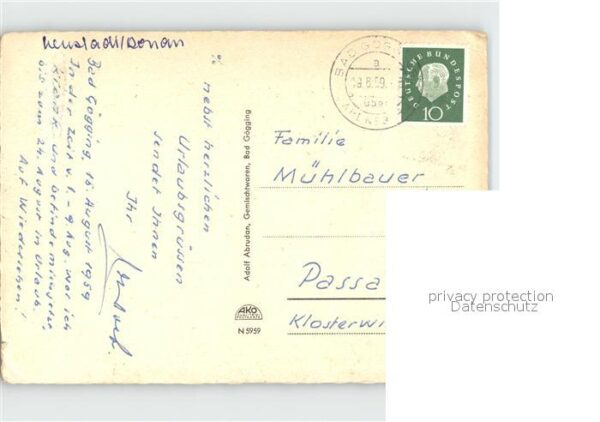 Neustadt/Donau
Bad Gögging, 18. August 1959
In der Zeit v. 1. - 9. Aug. war ich
krank und befinde mich jetzt
bis zum 24. August in Urlaub.
Auf Wiedersehen!
nebst herzlichen
Urlaubsgrüssen
sendet Ihnen
Ihr
Adolf Abrudan, Gemischtwaren, Bad Gögging
AKO
N 5959
BAD GÖGG
a
8.59
über
DEUTSCHE BUNDESPOST
10
Familie
Mühlbauer
Passa
Klosterwi
privacy protection
Datenschutz